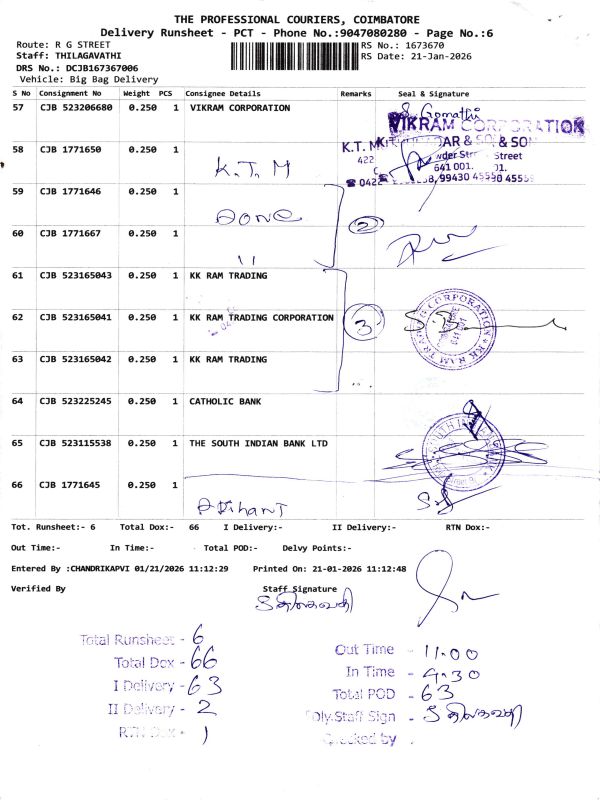 THE PROFESSIONAL COURIERS, COIMBATORE
Delivery Runsheet - PCT - Phone No.:9047080280 - Page No.:6
Route: R G STREET RS No.: 1673670
Staff: THILAGAVATHI RS Date: 21-Jan-2026
DRS No.: DCJB167367006
Vehicle: Big Bag Delivery
S No Consignment No Weight PCS Consignee Details Remarks Seal & Signature
57 CJB 523206680 0.250 1 VIKRAM CORPORATION S. Gomathi
VIKRAM CORPORATION
58 CJB 1771650 0.250 1 K.T.M
59 CJB 1771646 0.250 1 Done
60 CJB 1771667 0.250 1 " 2
61 CJB 523165043 0.250 1 KK RAM TRADING
62 CJB 523165041 0.250 1 KK RAM TRADING CORPORATION 3
KK RAM TRADING CORPORATION
63 CJB 523165042 0.250 1 KK RAM TRADING
64 CJB 523225245 0.250 1 CATHOLIC BANK
65 CJB 523115538 0.250 1 THE SOUTH INDIAN BANK LTD
66 CJB 1771645 0.250 1 Arihant
Tot. Runsheet:- 6 Total Dox:- 66 I Delivery:- II Delivery:- RTN Dox:-
Out Time:- In Time:- Total POD:- Delvy Points:-
Entered By :CHANDRIKAPVI 01/21/2026 11:12:29 Printed On: 21-01-2026 11:12:48
Verified By Staff Signature
திலகவதி
Total Runsheet - 6
Total Dox - 66
I Delivery - 63
II Delivery - 2
RTN Dox - 1
Out Time - 11.00
In Time - 4.30
Total POD - 63
Dly.Staff Sign - திலகவதி
Checked by